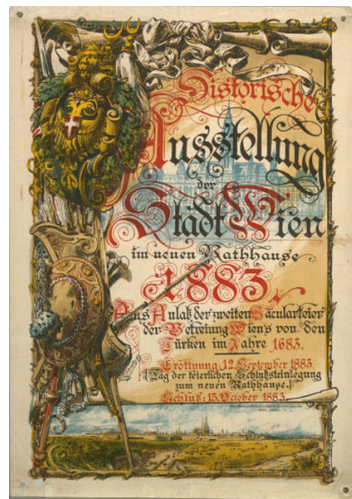 Historische
Ausstellung
der
Stadt Wien
im neuen Rathhause
1883.
Aus Anlaß der zweiten Säcularfeier
der Befreiung Wiens von den
Türken im Jahre 1683.
Eröffnung 12. September 1883
(Tag der feierlichen Schlußsteinlegung
zum neuen Rathhause.)
Schluß: 15. October 1883.